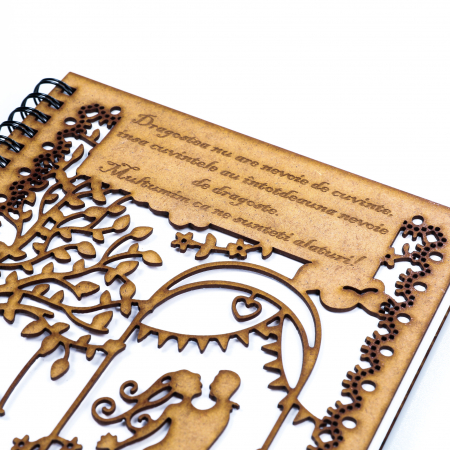 Dragostea nu are nevoie de cuvinte,
insa cuvintele au intotdeauna nevoie
de dragoste.
Multumim ca ne sunteti alaturi!